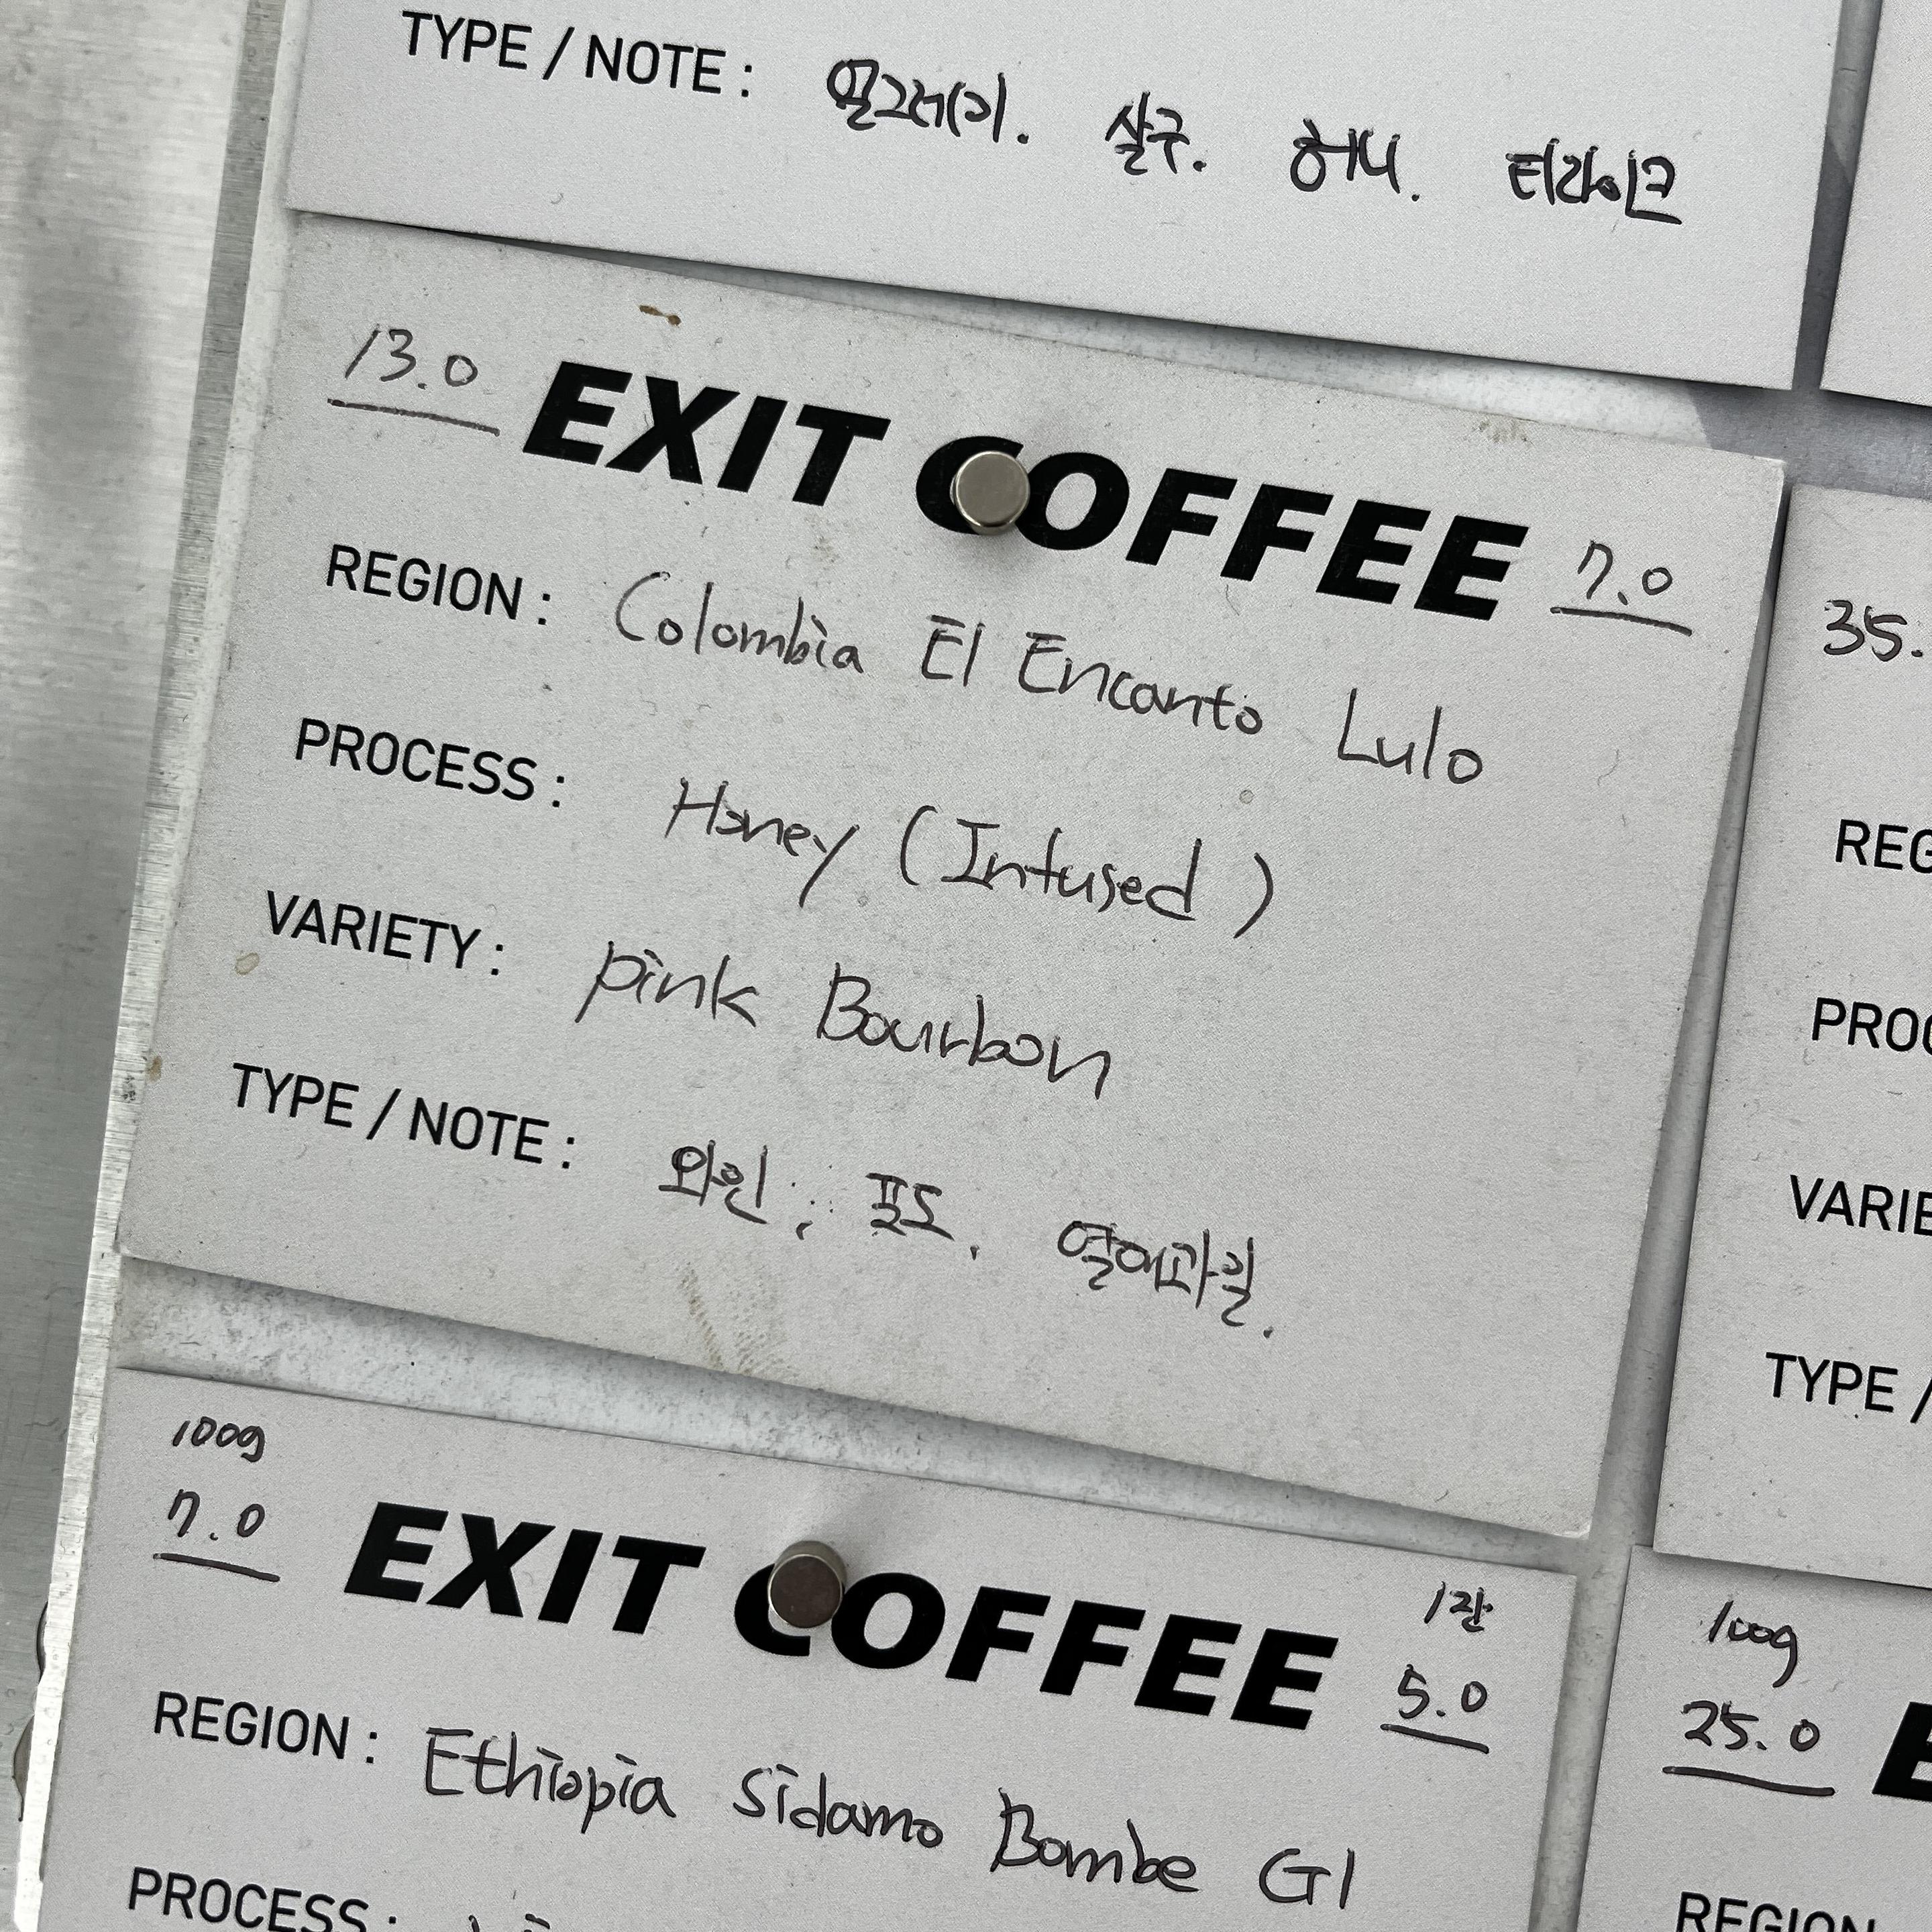 TYPE / NOTE : 얼그레이. 살구. 허니. 티라이크
13.0 EXIT COFFEE 7.0
REGION : Colombia El Encanto Lulo
PROCESS : Honey (Infused)
VARIETY : pink Bourbon
TYPE / NOTE : 와인, 포도, 열대과일.
100g
7.0 EXIT COFFEE
1잔
5.0
REGION : Ethiopia Sidamo Bombe G1
PROCESS :
35.
REG
PROC
VARIE
TYPE /
100g
25.0 E
REGION